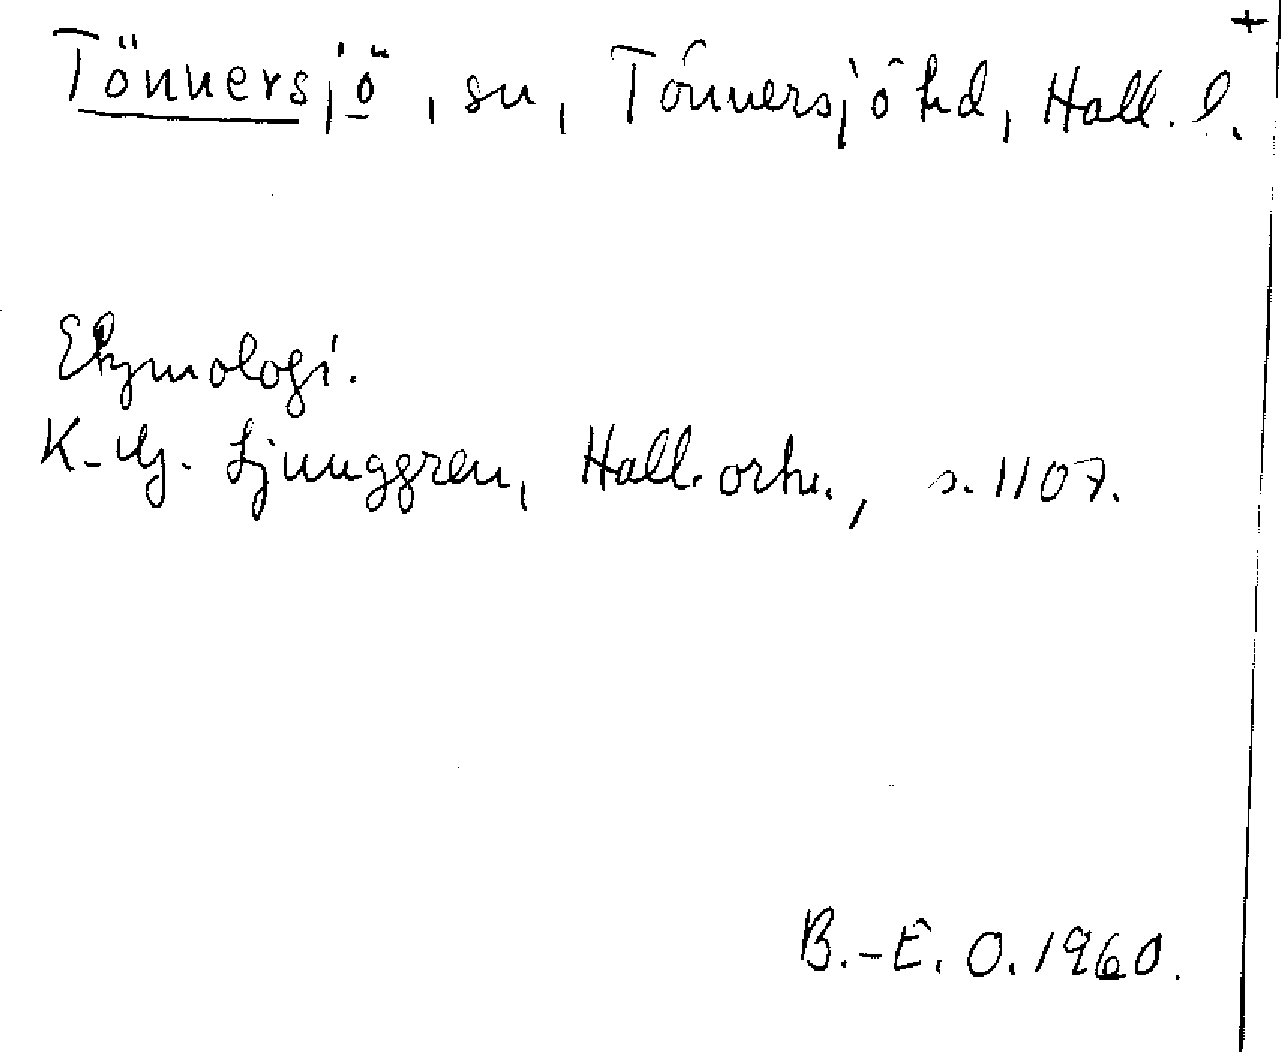 +
Tönnersjö, sn, Tönnersjö hd, Hall. l.
Etymologi.
K.-G. Ljunggren, Hall. ortn., s. 1107.
B.-E. O. 1960.